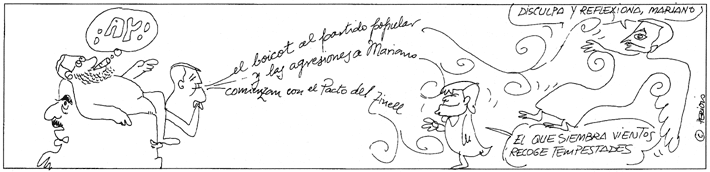 ¡AY!
el boicot al partido popular
y las agresiones a Mariano
comienzan con el Pacto del Tinell
DISCULPA Y REFLEXIONA, MARIANO
EL QUE SIEMBRA VIENTOS
RECOGE TEMPESTADES
© PERIDIS